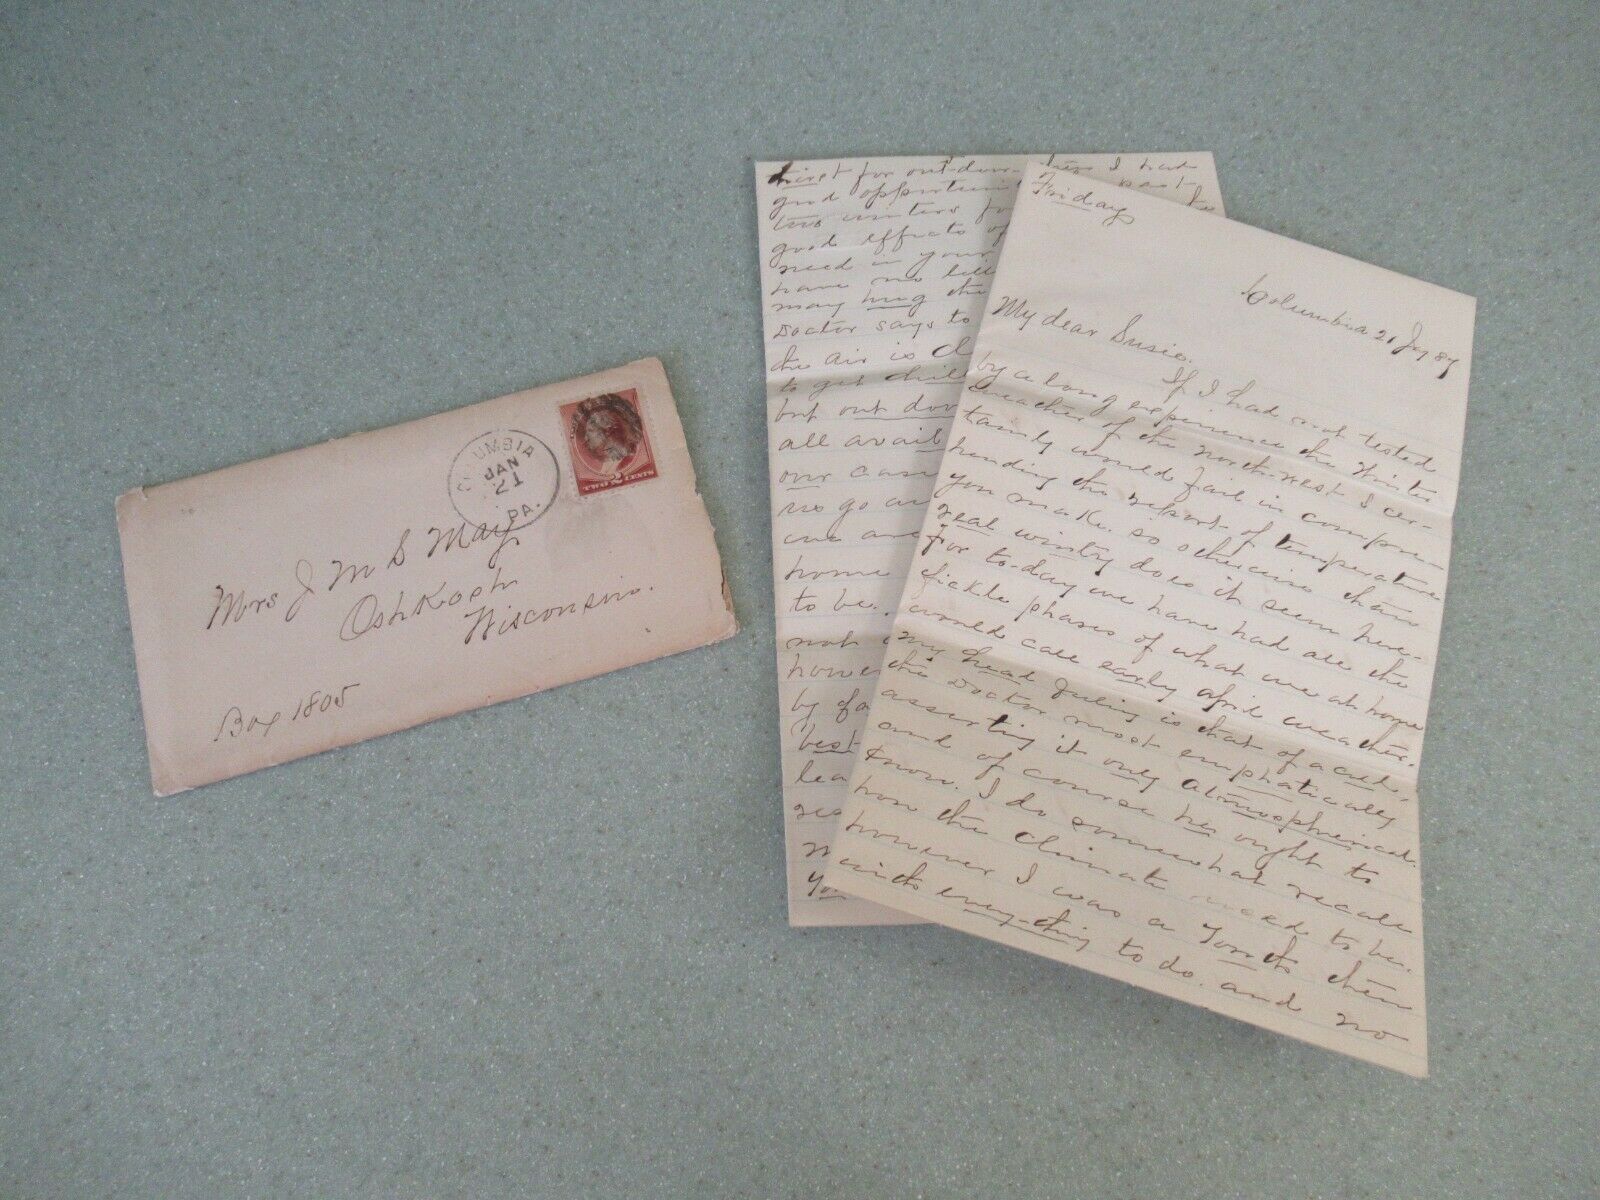 COLUMBIA
JAN
21
PA.
TWO 2 CENTS
Mrs J M S May
Oshkosh
Wisconsin.
Box 1805
Friday
Columbia 21 Jay 87
My dear Susie.
If I had not tested
by a long experience the Winter
weather of the north-west I cer-
tainly would fail in compre-
hending the report of temperature
you make. so otherwise than
real wintry does it seem here-
For to-day we have had all the
fickle phases of what we at home
would call early April weather.
My head feeling is that of a cold,
the Doctor most emphatically
asserting it only atmospherical.
and of course he ought to
know. I do somewhat recall
how the climate used to be.
however I was a Youth then
with every-thing to do. and no
thirst for out-door I had
good past
two winters for
good effects of
need in your
have no
may hug the
Doctor says to
the air is
to get
but out doo
all avail
our cas
us go a
we are
home
to be.
not
howe
by fa
best
lea